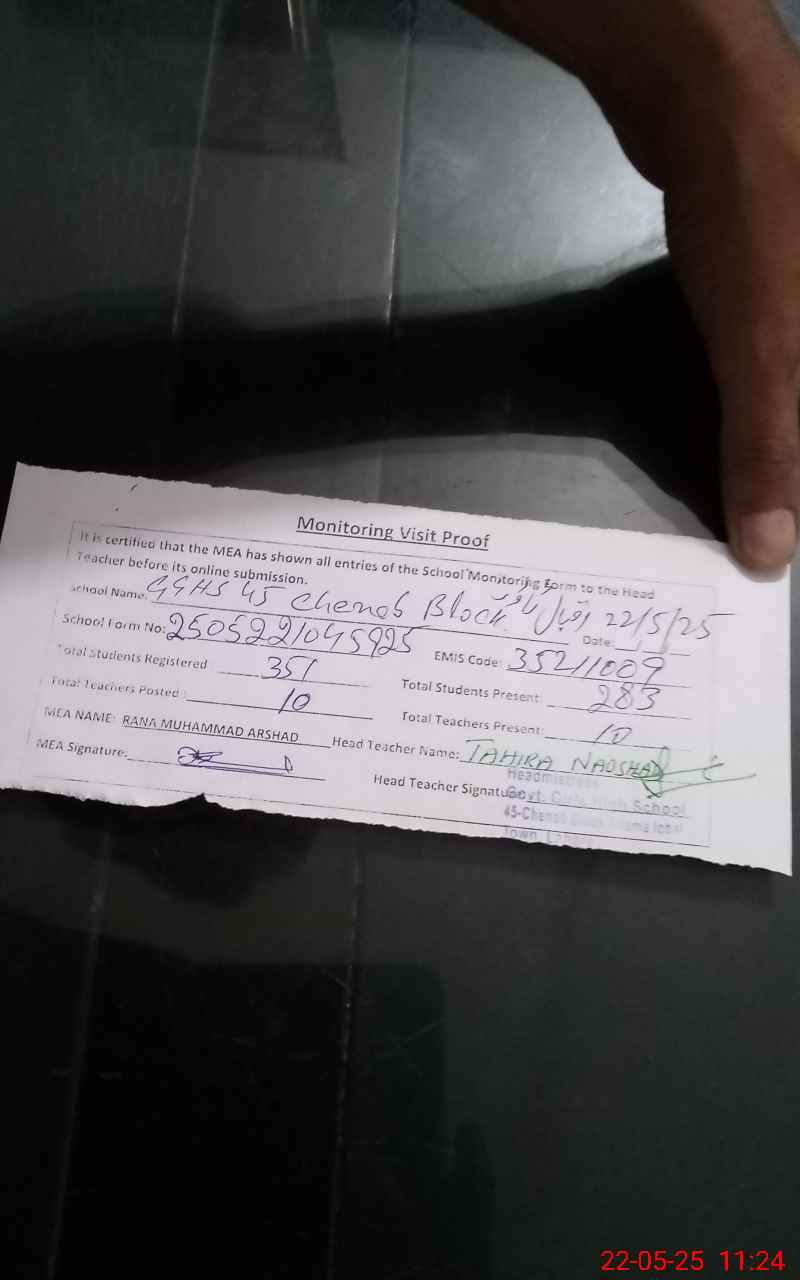 Monitoring Visit Proof
It is certified that the MEA has shown all entries of the School Monitoring Form to the Head
Teacher before its online submission.
School Name: GGHS 45 Chenab Block اقبال ٹاؤن Date: 22/5/25
School Form No: 2505221045925 EMIS Code: 35211009
Total Students Registered 351 Total Students Present: 283
Total Teachers Posted: 10 Total Teachers Present: 10
MEA NAME: RANA MUHAMMAD ARSHAD Head Teacher Name: TAHIRA NAUSHAD
MEA Signature: Head Teacher Signature:
Headmistress
Govt. Girls High School
45-Chenab Block Allama Iqbal
Town, Lahore
22-05-25 11:24